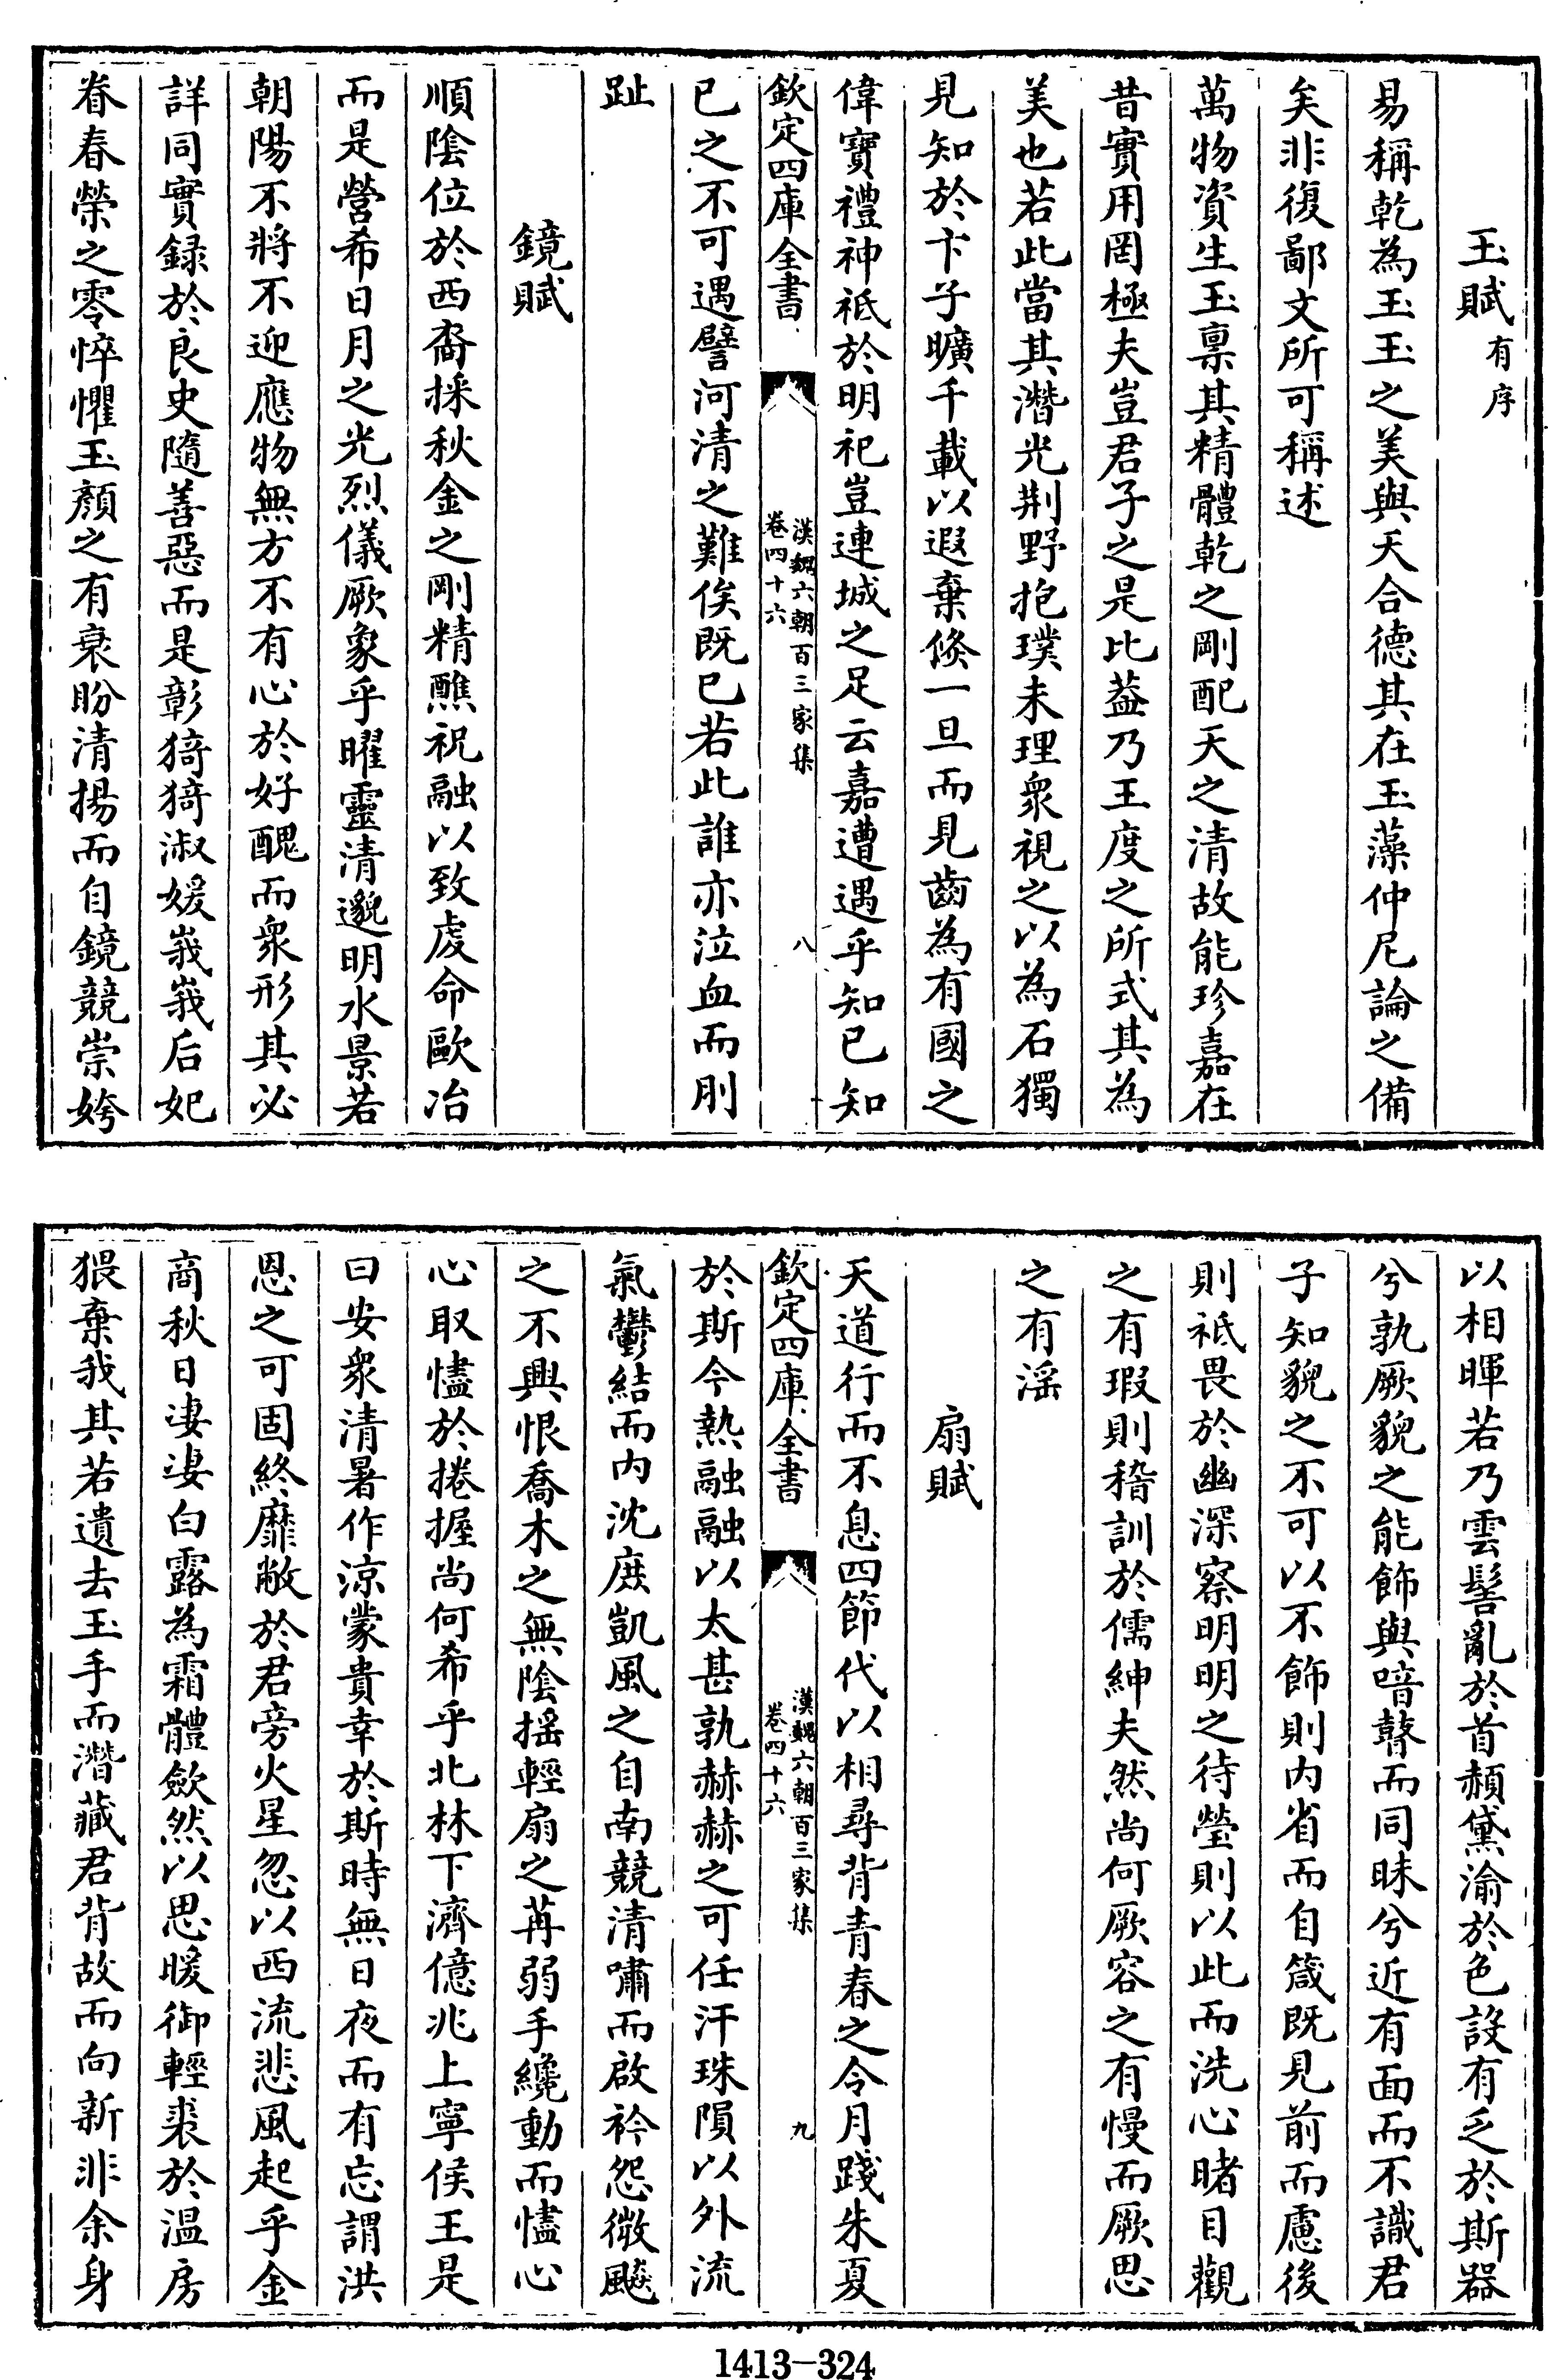 玉賦有序
易稱乾為玉玉之美與天合德其在玉藻仲尼論之備
矣非復鄙文所可稱述
萬物資生玉禀其精體乾之剛配天之清故能珍嘉在
昔實用罔極夫豈君子之是比葢乃王度之所式其為
美也若此當其潛光荆野抱璞未理衆視之以為石獨
見知於卞子曠千載以遐棄倐一旦而見齒為有國之
偉寶禮神祇於明祀豈連城之足云嘉遭遇乎知已知
欽定四庫全書
漢魏六朝百三家集
卷四十六
八
已之不可遇譬河清之難俟既已若此誰亦泣血而刖
趾
鏡賦
順陰位於西裔採秋金之剛精醮祝融以致虔命歐冶
而是營希日月之光烈儀厥象乎曜靈清邈明水景若
朝陽不將不迎應物無方不有心於好醜而衆形其必
詳同實録於良史隨善惡而是彰猗猗淑媛峩峩后妃
眷春榮之零悴懼玉顏之有衰盼清揚而自鏡競崇姱
以相暉若乃雲髻亂於首頳黛渝於色設有乏於斯器
兮孰厥貌之能飾與喑瞽而同昧兮近有面而不識君
子知貌之不可以不飾則内省而自箴既見前而慮後
則祗畏於幽深察明明之待瑩則以此而洗心睹目觀
之有瑕則稽訓於儒紳夫然尚何厥容之有慢而厥思
之有淫
扇賦
天道行而不息四節代以相尋背青春之令月踐朱夏
欽定四庫全書
漢魏六朝百三家集
卷四十六
九
於斯今熱融融以太甚孰赫赫之可任汗珠隕以外流
氣鬱結而内沈庶凱風之自南競清嘯而啟衿怨微飈
之不興恨喬木之無陰揺輕扇之苒弱手纔動而儘心
心取儘於捲握尚何希乎北林下濟億兆上寧侯王是
曰安衆清暑作涼蒙貴幸於斯時無日夜而有忘謂洪
恩之可固終靡敝於君旁火星忽以西流悲風起乎金
商秋日凄凄白露為霜體歛然以思暖御輕裘於温房
猥棄我其若遺去玉手而潛藏君背故而向新非余身
1413-324